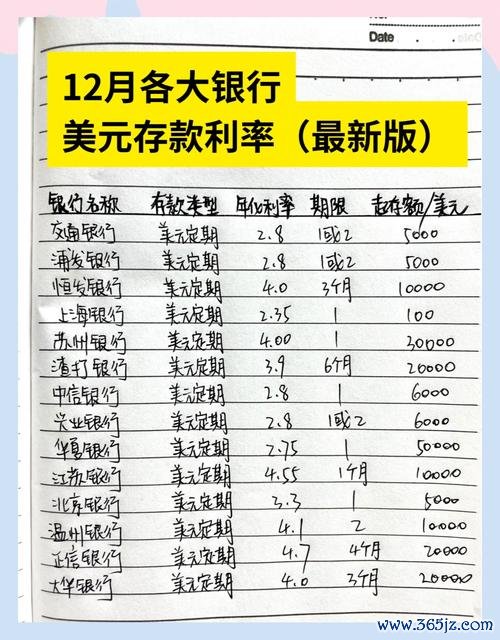 No.
Date . .
12月各大银行
美元存款利率（最新版）
银行名称 存款类型 年化利率 期限 起存额/美元
交南银行 美元定期 2.8 1或2 5000
浦发银行 美元定期 2.8 1或2 5000
恒发银行 美元定期 4.0 3个月 10000
上海银行 美元定期 2.35 1 100
苏州银行 美元定期 4.00 1 30000
渣打银行 美元定期 3.9 6个月 20000
中信银行 美元定期 2.8 1 6000
兴业银行 美元定期 2.8 1或2 6000
华夏银行 美元定期 2.75 1 50000
江苏银行 美元定期 4.55 1个月 10000
北京银行 美元定期 3.3 1 5000
温州银行 美元定期 4.1 2 10000
正信银行 美元定期 4.7 4个月 20000
大华银行 美元定期 4.0 3个月 20000
www.365jz.com